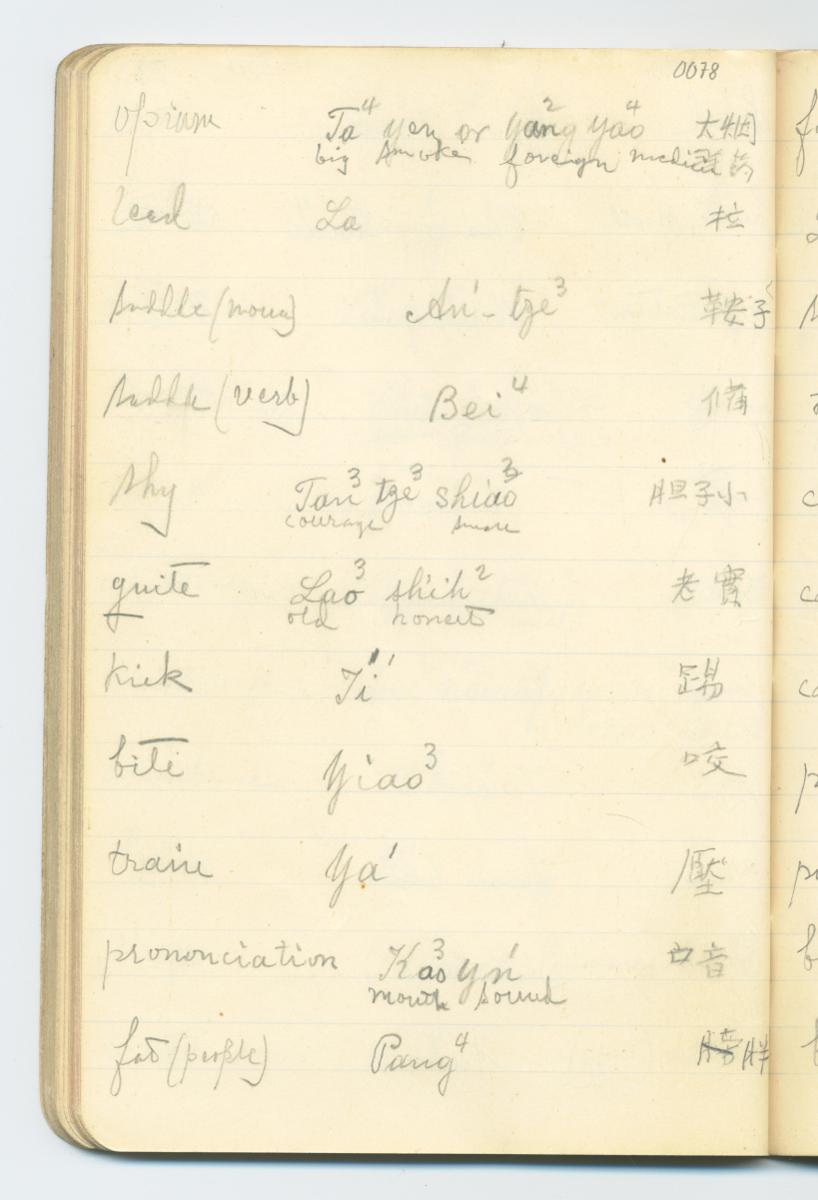 0078
opium Ta⁴ yen or yang² yao⁴ 大烟
big smoke foreign medicine 洋药
lead La 拉
saddle (noun) An¹-tze³ 鞍子
saddle (verb) Bei⁴ 備
shy Tan³ tze³ shiao³ 胆子小
courage small
quite Lao³ shih² 老實
old honest
kick Ti¹ 踢
bite Yiao³ 咬
train Ya¹ 壓
prononciation Kao³ yn¹ 口音
mouth sound
fat (people) Pang⁴ 胖